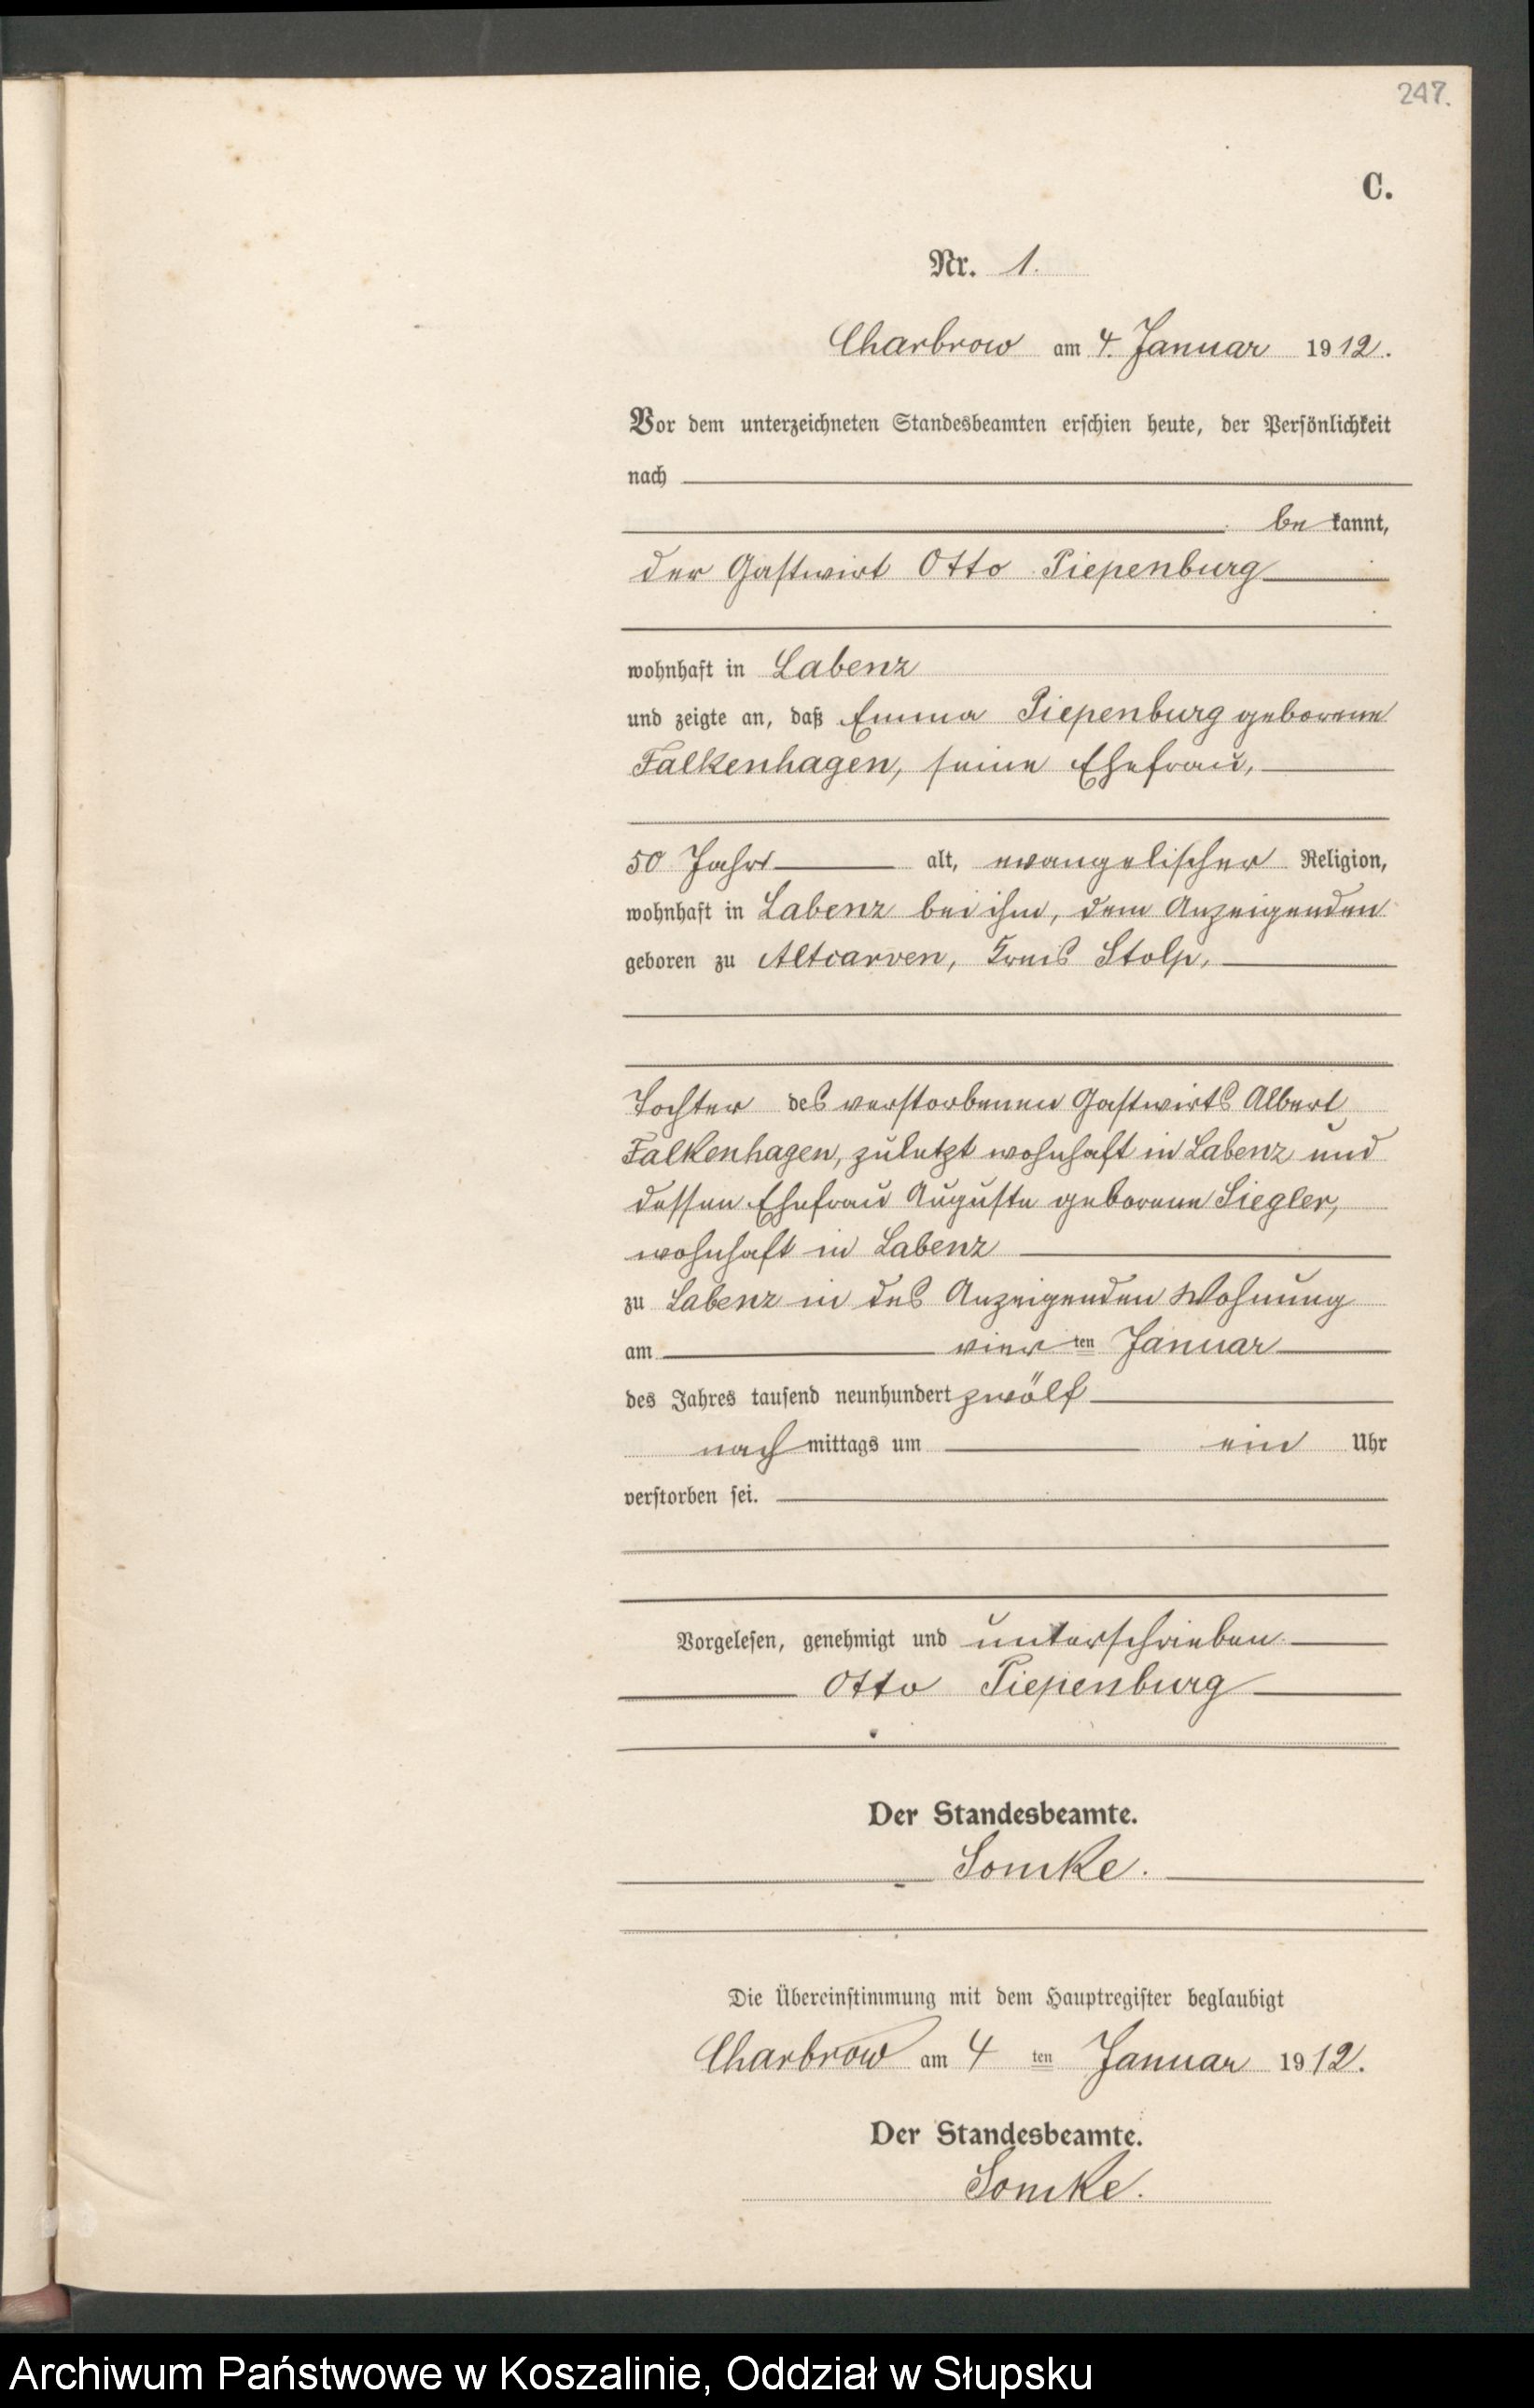 247.
C.
Nr. 1.
Charbrow am 4. Januar 1912.
Vor dem unterzeichneten Standesbeamten erschien heute, der Persönlichkeit
nach
be kannt,
der Gastwirt Otto Piepenburg
wohnhaft in Labenz
und zeigte an, daß Emma Piepenburg geborene
Falkenhagen, seine Ehefrau,
50 Jahre alt, evangelischer Religion,
wohnhaft in Labenz bei ihm, dem Anzeigenden
geboren zu Altcarven, Kreis Stolp,
Tochter des verstorbenen Gastwirts Albert
Falkenhagen, zuletzt wohnhaft in Labenz und
dessen Ehefrau Auguste geborene Siegler,
wohnhaft in Labenz
zu Labenz in des Anzeigenden Wohnung
am vier ten Januar
des Jahres tausend neunhundert zwölf
nach mittags um ein Uhr
verstorben sei.
Vorgelesen, genehmigt und unterschrieben.
Otto Piepenburg
Der Standesbeamte.
Die Übereinstimmung mit dem Hauptregister beglaubigt
Charbrow am 4 ten Januar 1912.
Der Standesbeamte.
Archiwum Państwowe w Koszalinie, Oddział w Słupsku